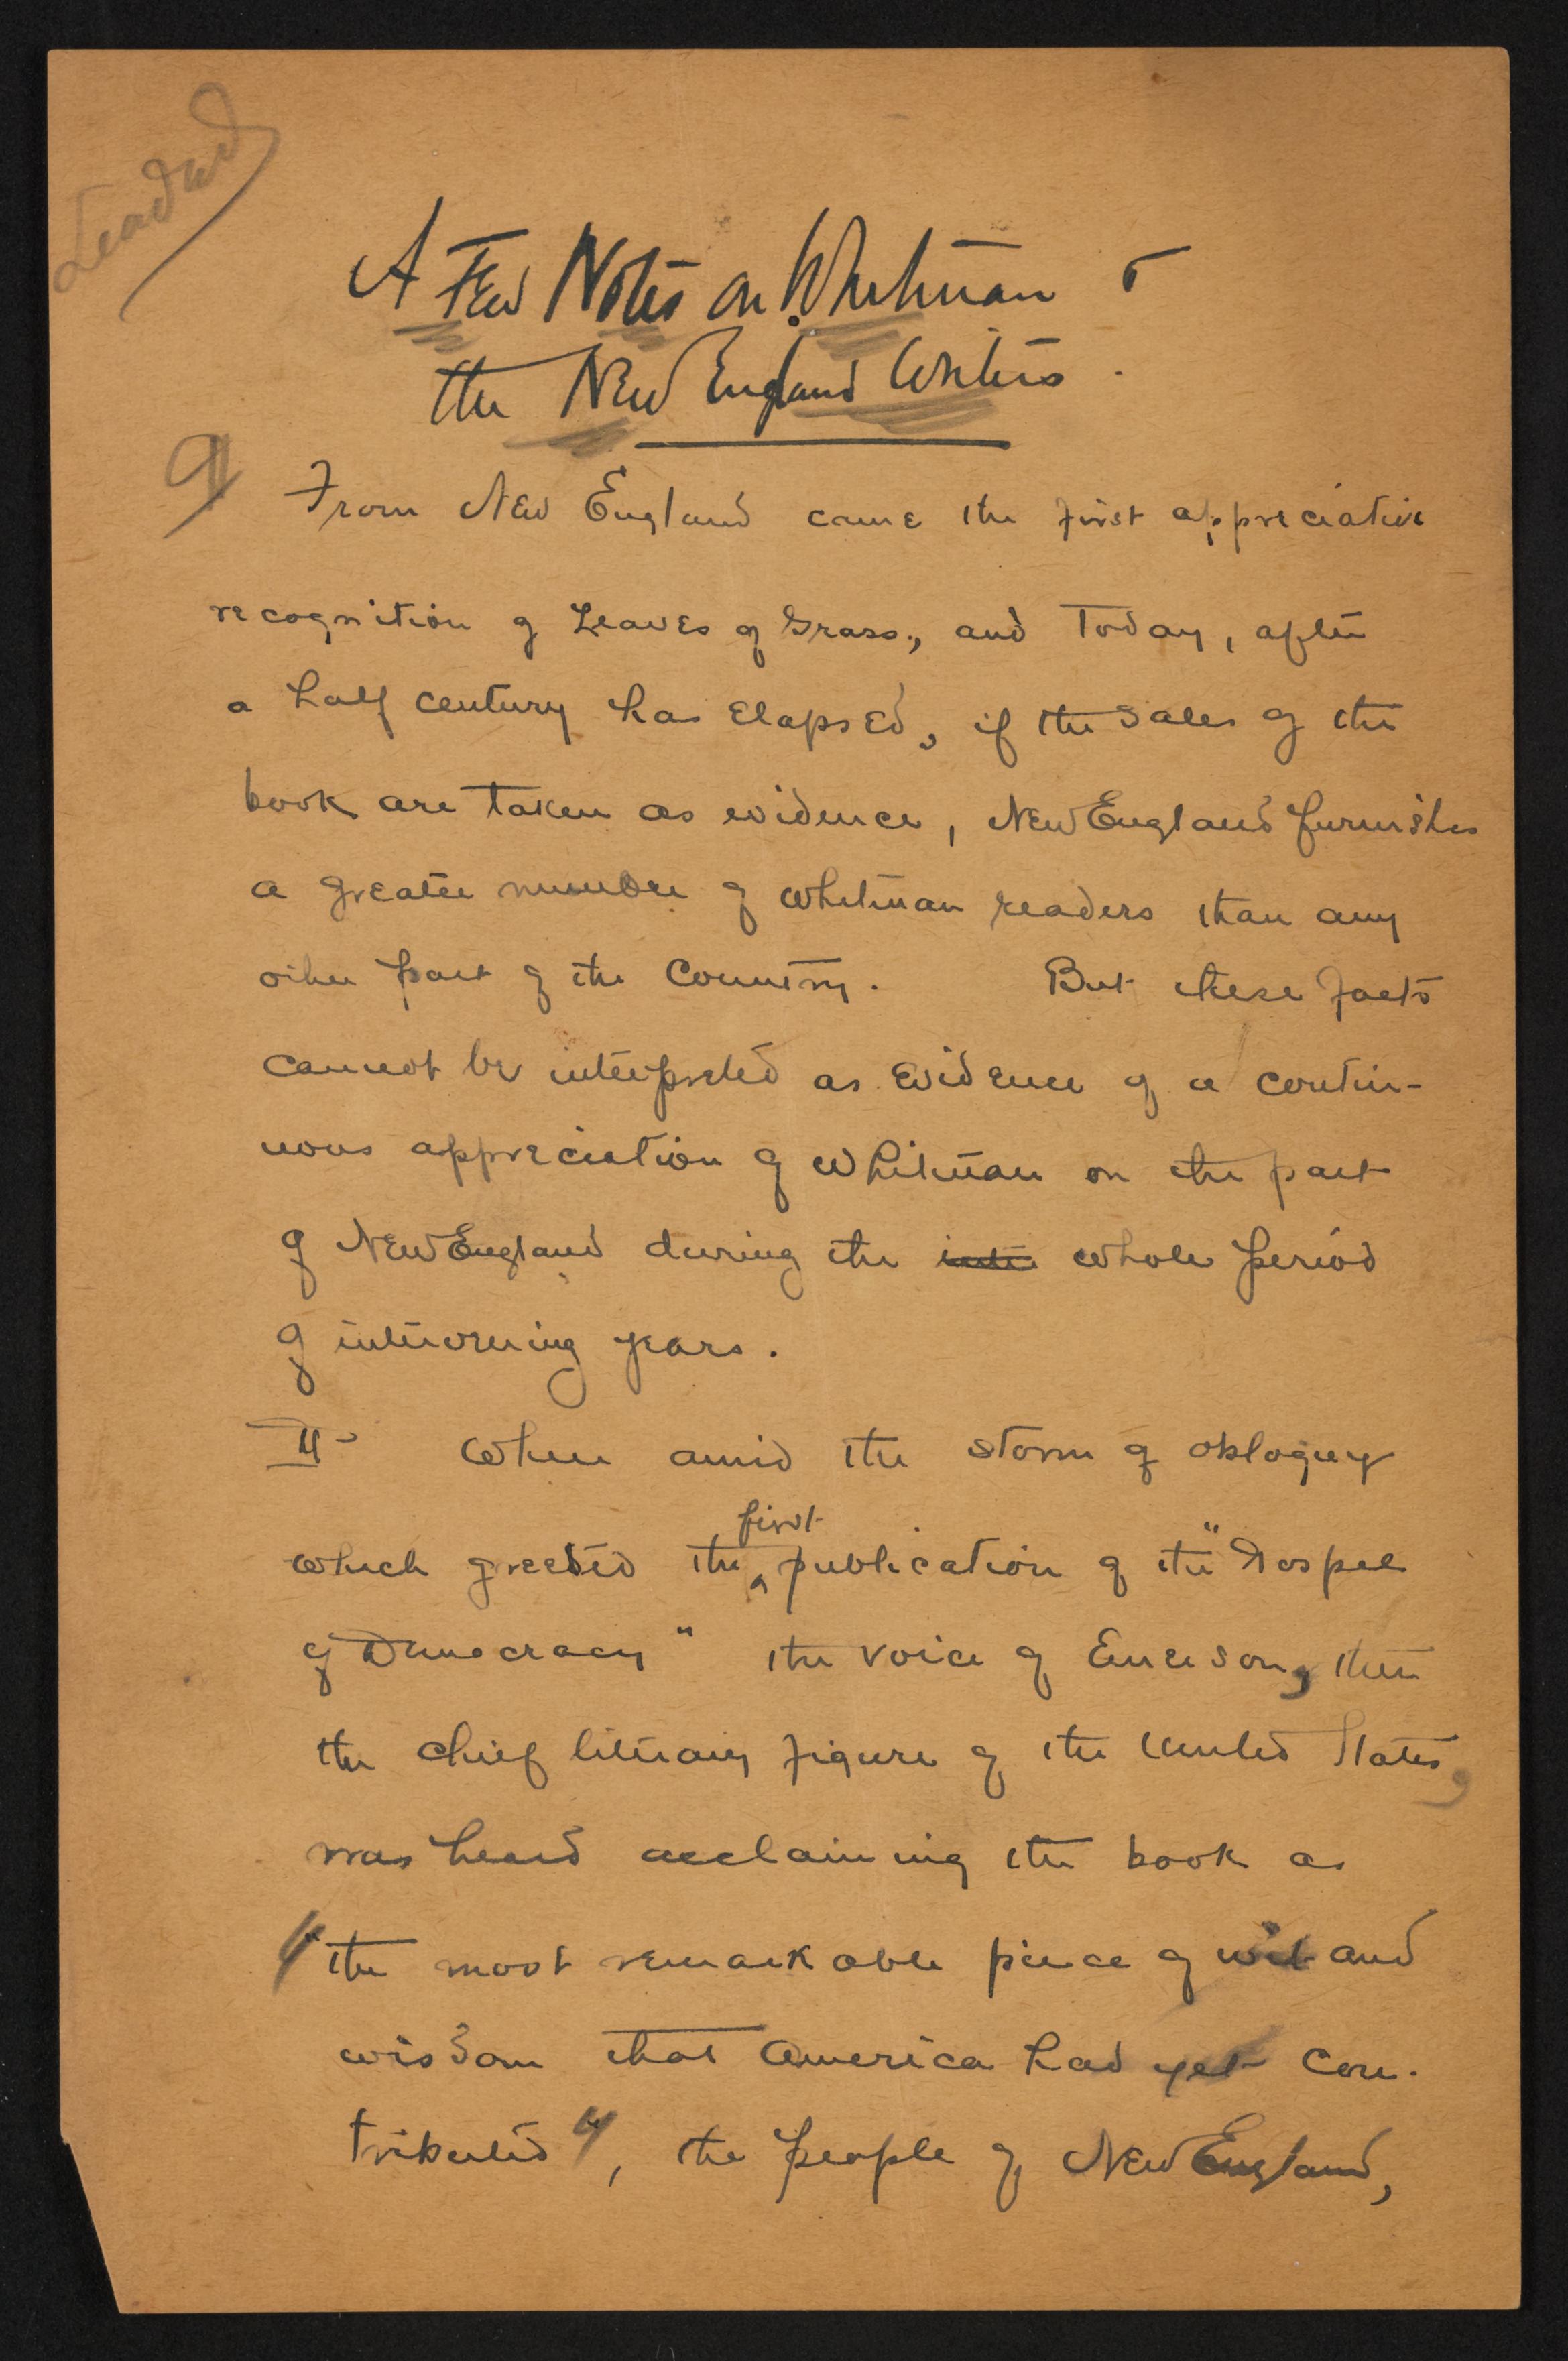 Leaded
A Few Notes on Whitman &
the New England Writers.
¶ From New England came the first appreciative
recognition of Leaves of Grass, and today, after
a half century has elapsed, if the sales of the
book are taken as evidence, New England furnishes
a greater number of Whitman readers than any
other part of the Country. But these facts
cannot be interpreted as evidence of a contin-
uous appreciation of Whitman on the part
of New England during the whole period
of intervening years.
¶ When amid the storm of obloquy
which greeted the first publication of the "Gospel
of Democracy" the voice of Emerson, then
the chief literary figure of the United States,
was heard acclaiming the book as
"the most remarkable piece of wit and
wisdom that America had yet con-
tributed", the people of New England,